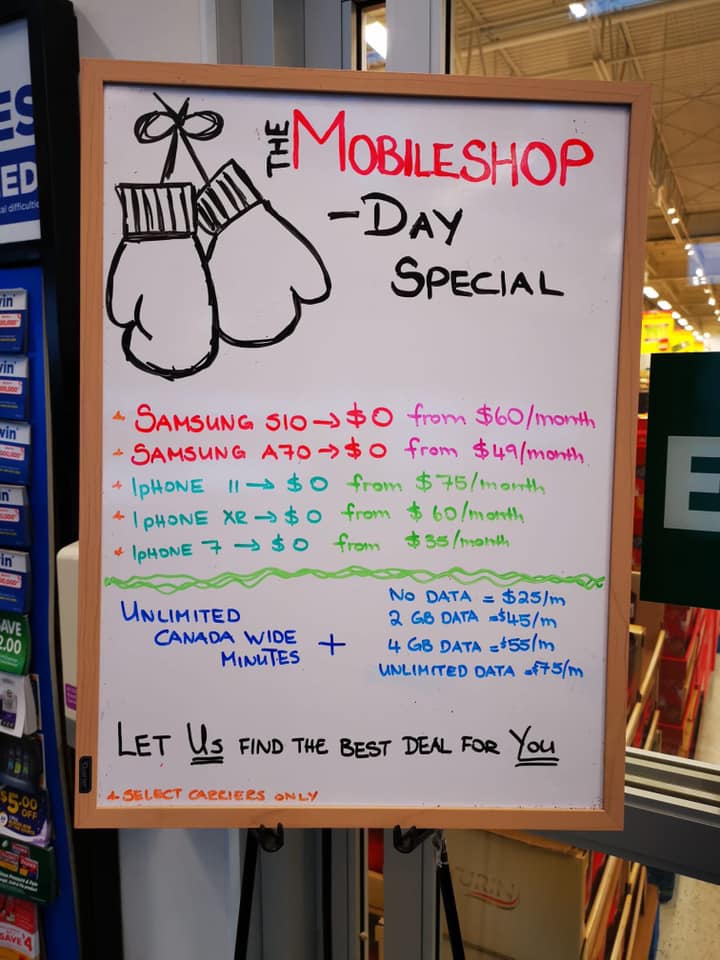 THE MOBILESHOP
-DAY
SPECIAL
* SAMSUNG S10 → $0 from $60/month
* SAMSUNG A70 → $0 from $49/month
* IPHONE 11 → $0 from $75/month
* IPHONE XR → $0 from $60/month
* IPHONE 7 → $0 from $35/month
UNLIMITED
CANADA WIDE
MINUTES
+
NO DATA = $25/m
2 GB DATA = $45/m
4 GB DATA = $55/m
UNLIMITED DATA = $75/m
LET Us FIND THE BEST DEAL FOR You
* SELECT CARRIERS ONLY
ES
ED
al difficultie
win
win
win
AVE
2.00
$5.00
OFF
SAVE $4
E